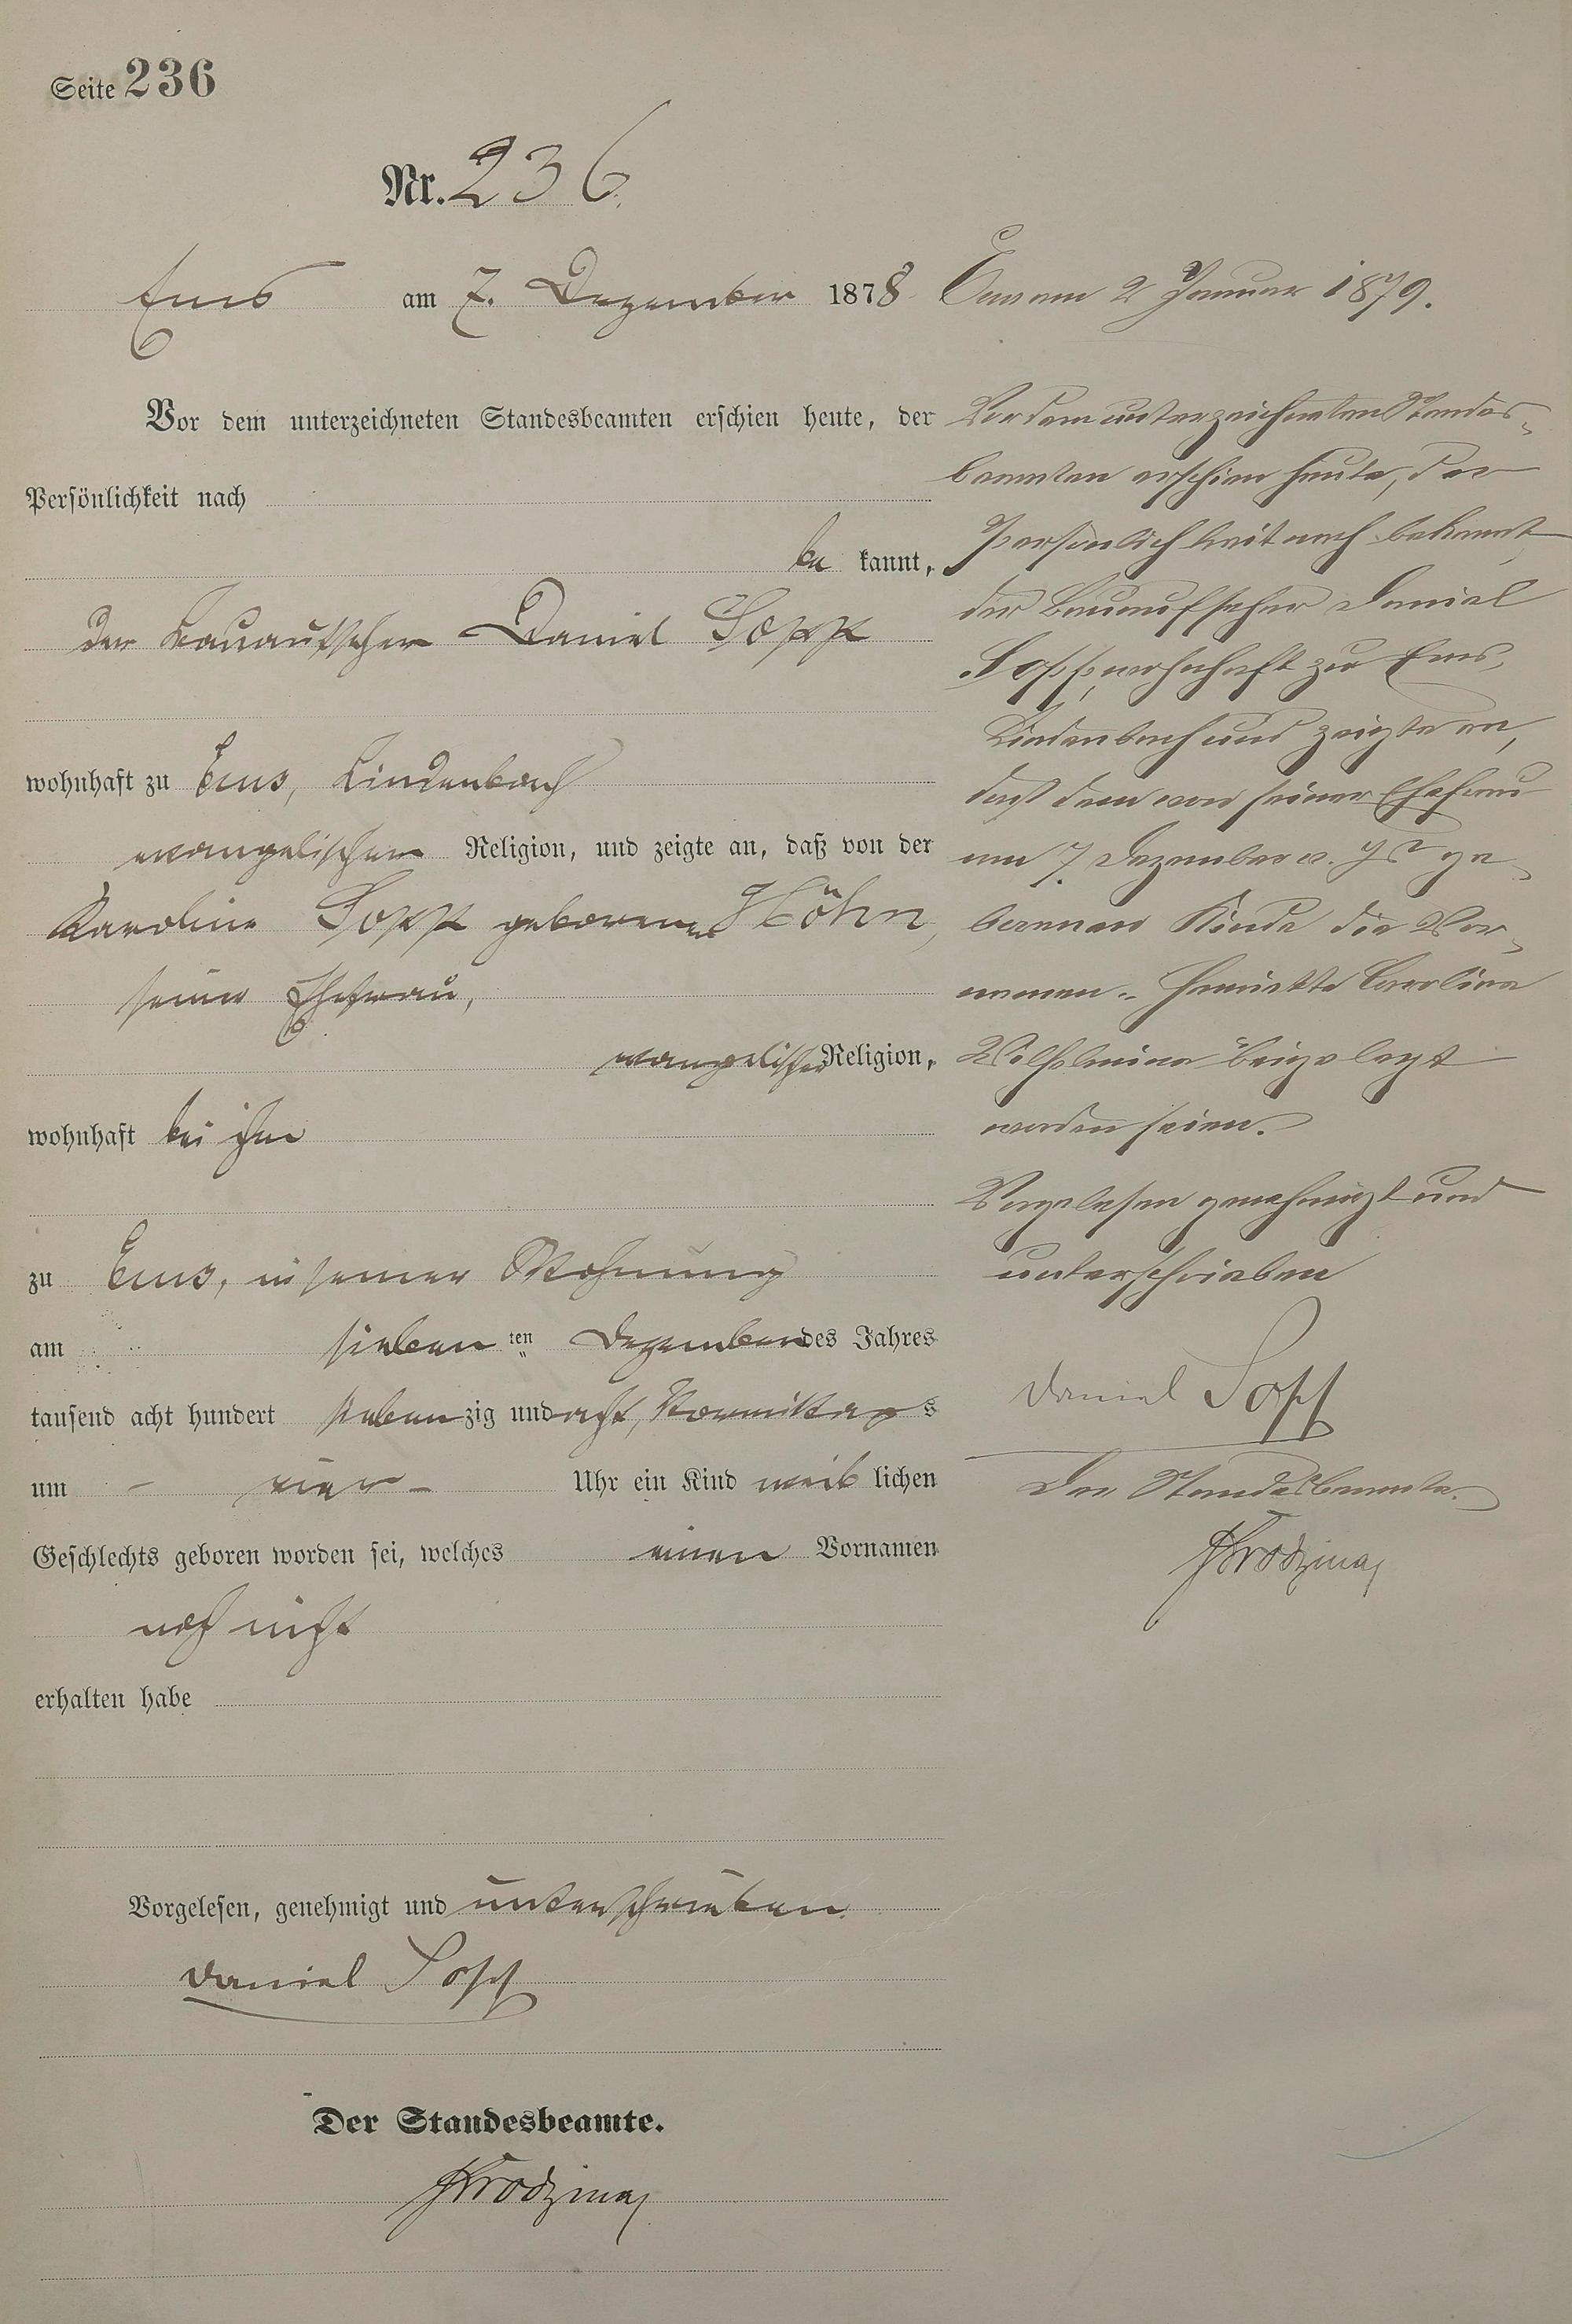 Seite 236
Nr. 236.
Ems am 7. Dezember 1878
Vor dem unterzeichneten Standesbeamten erschien heute, der
Persönlichkeit nach
be kannt,
der Bauaufseher Daniel Sopp
wohnhaft zu Ems, Lindenbach
evangelischer Religion, und zeigte an, daß von der
Karoline Sopp geborenen Höhn,
seiner Ehefrau,
evangelischer Religion,
wohnhaft bei ihm
zu Ems, in seiner Wohnung
am sieben ten Dezember des Jahres
tausend acht hundert sieben zig und acht, Vormittag s
um - vier - Uhr ein Kind weib lichen
Geschlechts geboren worden sei, welches einen Vornamen
noch nicht
erhalten habe
Vorgelesen, genehmigt und unterschrieben
Daniel Sopp
Der Standesbeamte.
Ems am 2 Januar 1879.
Vor dem unterzeichneten Standes-
beamten erschien heute, der
Persönlichkeit nach bekannt
der Bauaufseher Daniel
Sopp, wohnhaft zu Ems,
Lindenbach und zeigte an,
daß dem von seiner Ehefrau
am 7. Dezember v. Js ge-
borenen Kinde die Vor-
namen „Henriette Carolina
Wilhelmina" beigelegt
worden seien.
Vorgelesen genehmigt und
unterschrieben
Daniel Sopp
Der Standesbeamte.